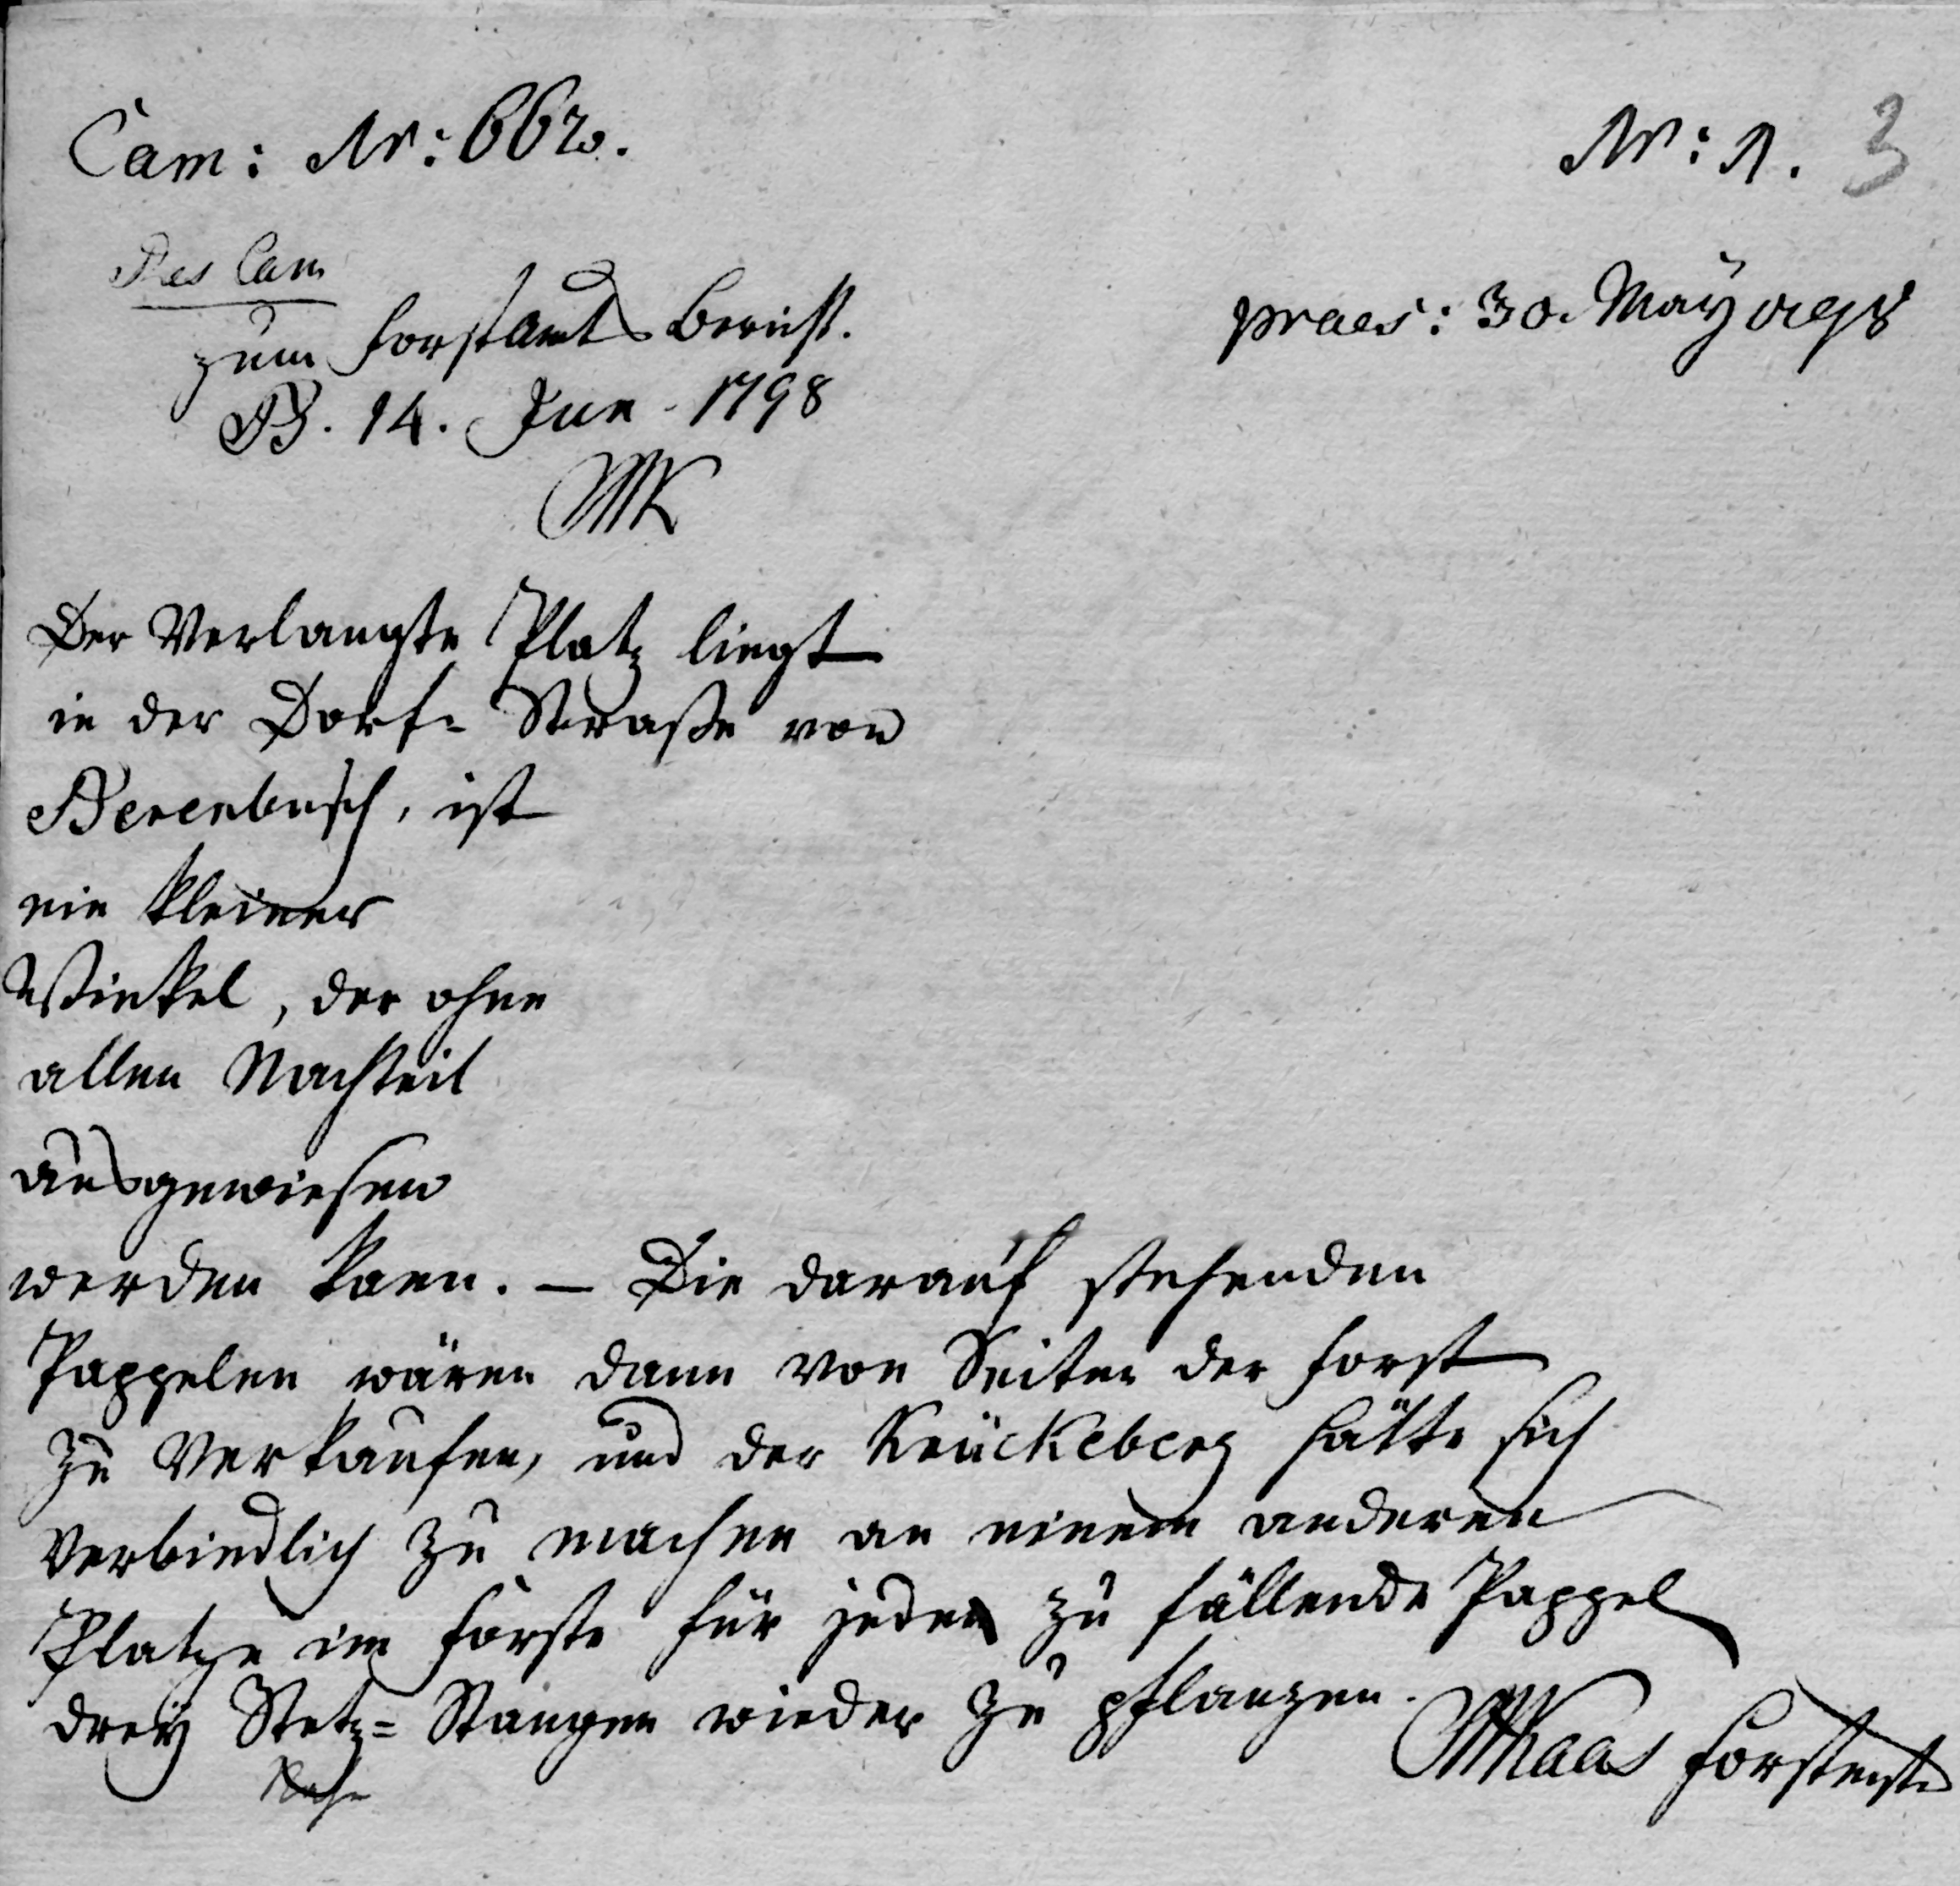 Cam: Nr: 662.
Nr: 1. 3
Res Cam
praes: 30. May 1798
zum Forstamts Bericht.
B. 14. Jun. 1798
Der Verlangte Platz liegt
in der Dorf= Straße von
Berenbusch, ist
ein kleiner
Winkel, der ohne
allen Nachteil
ausgewiesen
werden kann. — Die darauf stehenden
Pappelen wären dann von Seiten der Forst
zu Verkaufen, und der Krückeberg hätte sich
Verbindlich zu machen an einem anderen
Platze im Forste für jede zu fällende Pappel
drey Setz= Stangen wieder zu pflanzen.
Kaas